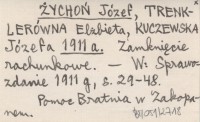 ŻYCHOŃ Józef, TRENK-
LERÓWNA Elżbieta, KUCZEWSKA
Józefa 1911 a. Zamknięcie
rachunkowe. — W: Sprawo-
zdanie 1911 g, s. 29-48.
Pomoc Bratnia w Zakopa-
nem.